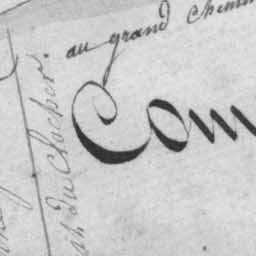 au grand chemin
Com
du Clocher.